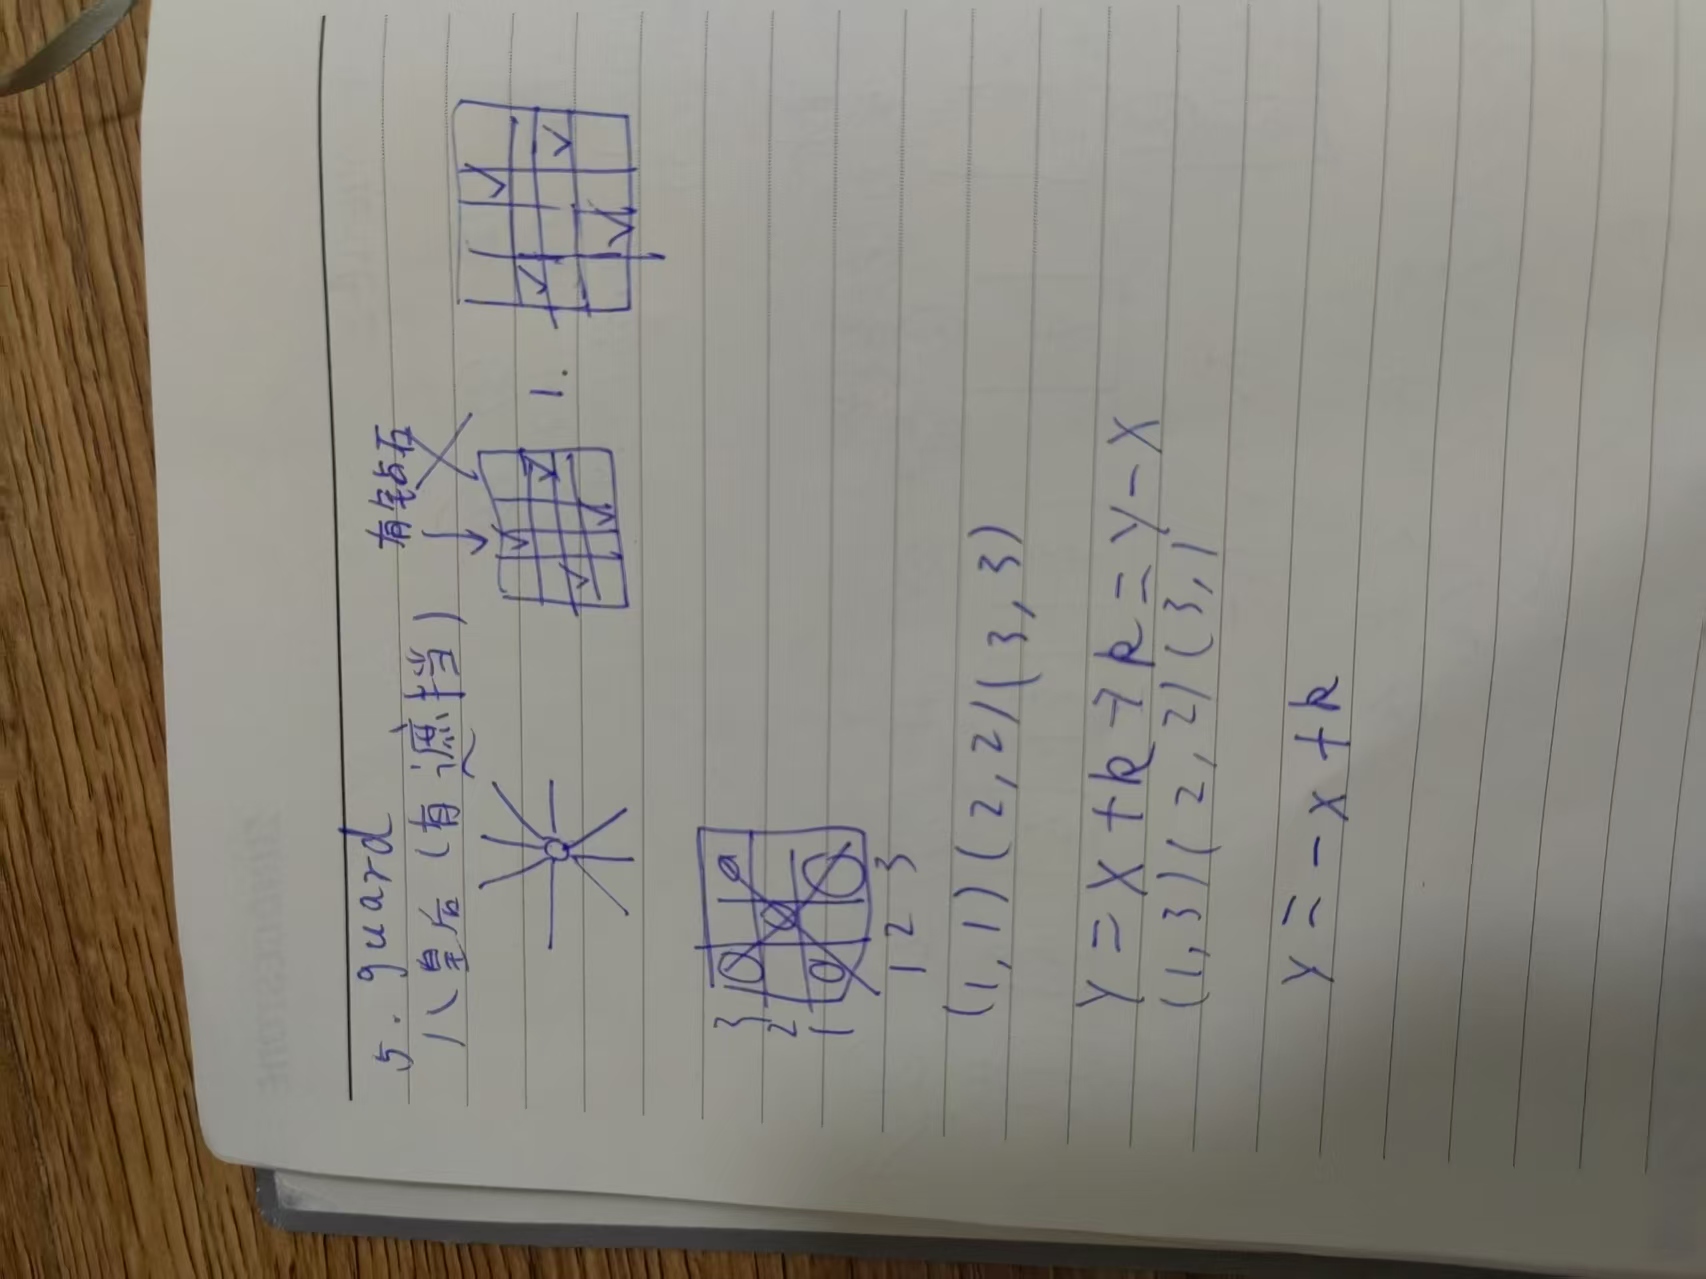 5. guard
八皇后（有遮挡）
有钻石
1.
3
2
1
1 2 3
(1,1)(2,2)(3,3)
y=x+k→k=y-x
(1,3)(2,2)(3,1
y=-x+k